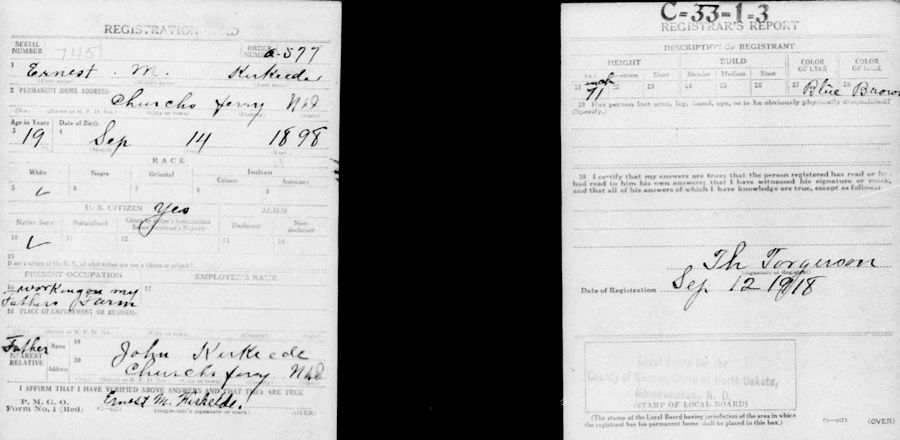 REGISTRATION CARD
SERIAL NUMBER 745 ORDER NUMBER a-577
1 Ernest . M. Kirkeide
2 PERMANENT HOME ADDRESS
Churchs ferry N.D
(No.) (Street or R. F. D. No.) (City or town) (County) (State)
Age in Years Date of Birth
3 19 4 Sep 14 1898
(Month) (Day) (Year)
RACE
White Negro Oriental Indian
Citizen Noncitizen
5 ✓ 6 7 8 9
U. S. CITIZEN Yes ALIEN
Native Born Naturalized Citizen by Father's Naturalization Before Registrant's Majority Declarant Non-declarant
10 ✓ 11 12 13 14
15
If not a citizen of the U. S., of what nation are you a citizen or subject?
PRESENT OCCUPATION EMPLOYER'S NAME
16 working on my 17
Fathers Farm
18 PLACE OF EMPLOYMENT OR BUSINESS
(No.) (Street or R. F. D. No.) (City or town) (County) (State)
Father Name 19 John Kirkeide
NEAREST RELATIVE Address 20 Churchs ferry N.D
(No.) (Street or R. F. D. No.) (City or town) (County) (State)
I AFFIRM THAT I HAVE VERIFIED ABOVE ANSWERS AND THAT THEY ARE TRUE
P. M. G. O.
Form No. 1 (Red) Ernest M. Kirkeide.
(Registrant's signature or mark) (OVER)
C-33-1-3
REGISTRAR'S REPORT
DESCRIPTION OF REGISTRANT
HEIGHT BUILD COLOR OF EYES COLOR OF HAIR
Tall Medium Short Slender Medium Stout
21 inch 71 22 23 24 25 26 27 Blue 28 Brown
29 Has person lost arm, leg, hand, eye, or is he obviously physically disqualified?
(Specify.)
30 I certify that my answers are true; that the person registered has read or has
had read to him his own answers; that I have witnessed his signature or mark,
and that all of his answers of which I have knowledge are true, except as follows:
Th Torgerson
(Signature of Registrar)
Date of Registration Sep 12 1918
Local Board for the
County of Benson, State of North Dakota,
Minnewaukan, N. D.
(STAMP OF LOCAL BOARD)
(The stamp of the Local Board having jurisdiction of the area in which
the registrant has his permanent home shall be placed in this box.)
(OVER)